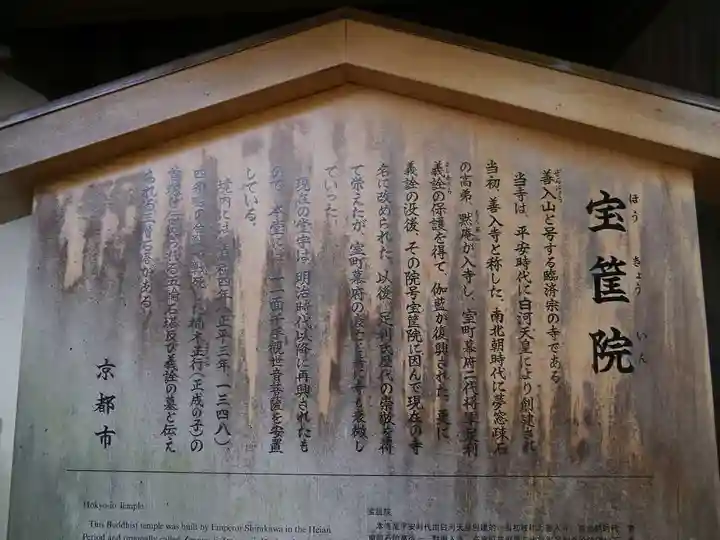 宝筐院
ほう きょう いん
善入山と号する臨済宗の寺である。
当寺は、平安時代に白河天皇により創建され
当初、善入寺と称した。南北朝時代に夢窓疎石
の高弟、黙庵が入寺し、室町幕府二代将軍足利
義詮の保護を得て、伽藍が復興された。更に
義詮の没後、その院号宝筐院に因んで現在の寺
名に改められた。以後、足利氏歴代の崇敬を得
て栄えたが、室町幕府の衰亡と共に寺も衰微し
ていった。
現在の堂宇は、明治時代以降に再興されたも
ので、本堂には、十一面千手観世音菩薩を安置
している。
境内には、正平三年、一三四八)、
四條畷の合戦で戦死した楠木正行(正成の子)の
首塚と伝えられる五輪石塔及び義詮の墓と伝え
られる三層石塔がある。
京都市
Hokyo-in Temple
This Buddhist temple was built by Emperor Shirakawa in the Heian
Period and originally called
宝筐院